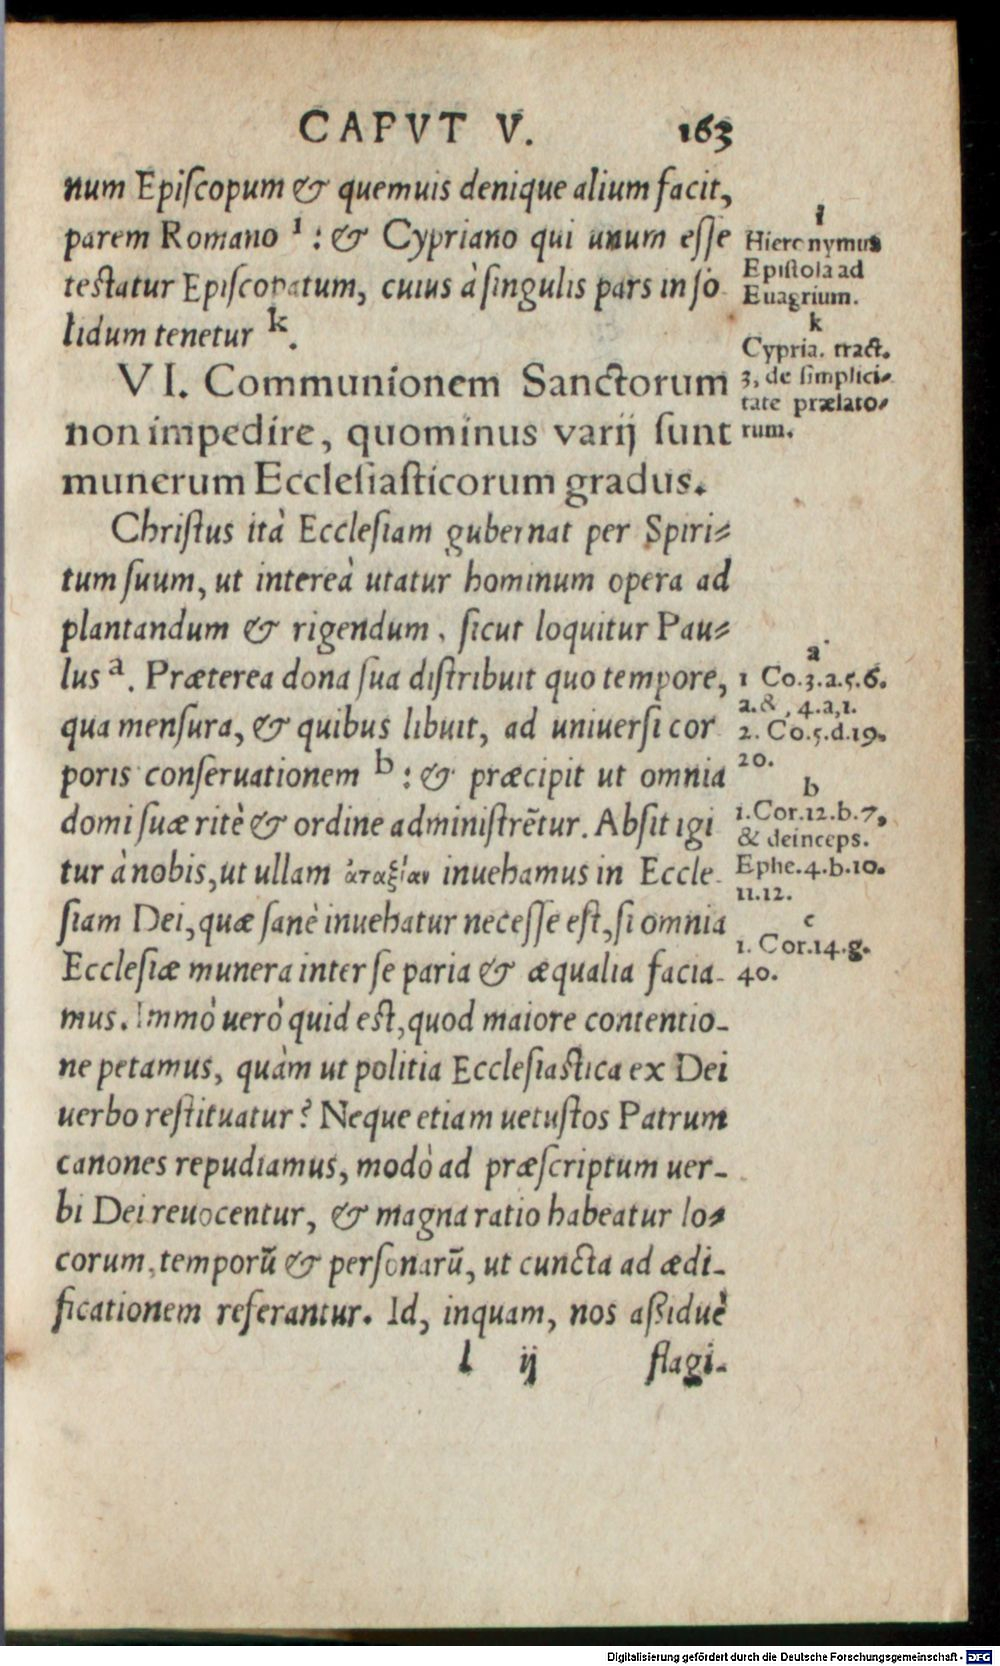 CAPVT V. 163
num Episcopum & quemuis denique alium facit,
parem Romano i : & Cypriano qui unum esse
testatur Episcopatum, cuius à singulis pars in so
lidum tenetur k.
i
Hieronymus
Epistola ad
Euagrium.
k
Cypria. tract.
3, de simplici-
tate prælato-
rum.
VI. Communionem Sanctorum
non impedire, quominus varij sunt
munerum Ecclesiasticorum gradus.
Christus ità Ecclesiam gubernat per Spiri-
tum suum, ut intereà utatur hominum opera ad
plantandum & rigendum, sicut loquitur Pau-
lus a. Præterea dona sua distribuit quo tempore,
qua mensura, & quibus libuit, ad uniuersi cor
poris conseruationem b : & præcipit ut omnia
domi suæ ritè & ordine administrẽtur. Absit igi
tur à nobis, ut ullam ἀταξίαν inuehamus in Eccle-
siam Dei, quæ sanè inuehatur necesse est, si omnia
Ecclesiæ munera inter se paria & æqualia facia-
mus. Immò uerò quid est, quod maiore contentio-
ne petamus, quàm ut politia Ecclesiastica ex Dei
uerbo restituatur? Neque etiam uetustos Patrum
canones repudiamus, modò ad præscriptum uer-
bi Dei reuocentur, & magna ratio habeatur lo-
corum, temporũ & personarũ, ut cuncta ad ædi-
ficationem referantur. Id, inquam, nos aßiduè
a
1 Co.3.a.5.6.
a.&, 4.a,1.
2. Co.5.d.19.
20.
b
1.Cor.12.b.7,
& deinceps.
Ephe.4.b.10.
11.12.
c
1. Cor.14.g.
40.
l ij flagi-
Digitalisierung gefördert durch die Deutsche Forschungsgemeinschaft - DFG